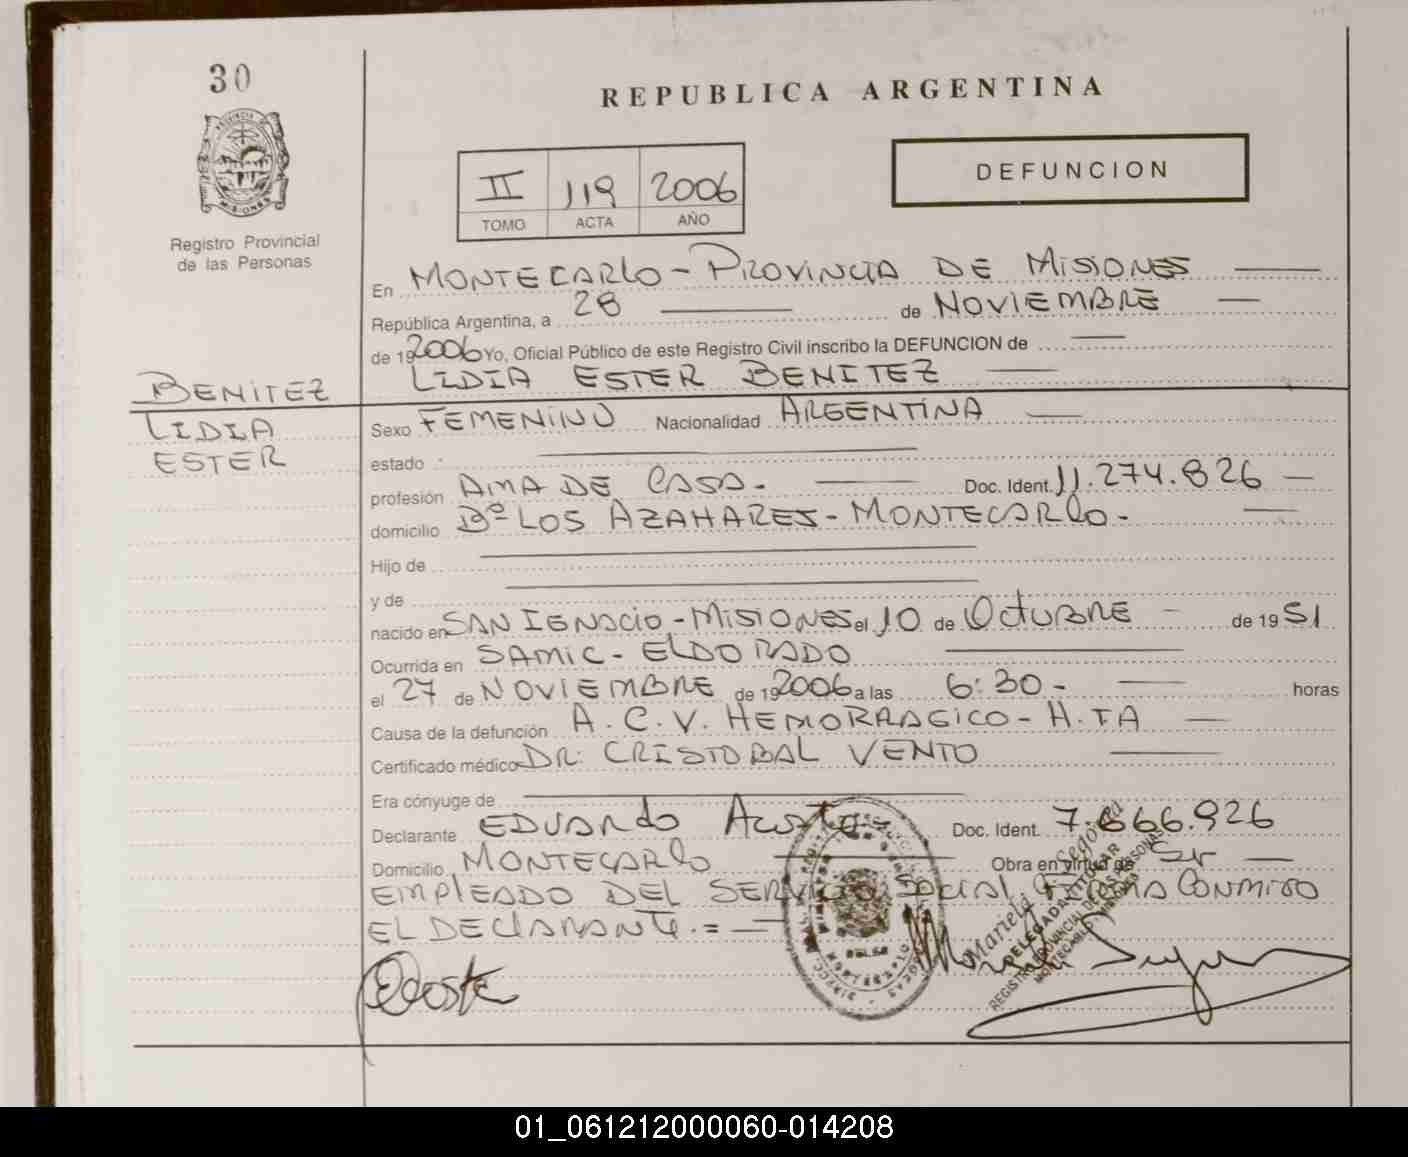 30
REPUBLICA ARGENTINA
DEFUNCION
II 119 2006
TOMO ACTA AÑO
PROVINCIA DE
MISIONES
Registro Provincial
de las Personas
En MONTECARLO - PROVINCIA DE MISIONES
República Argentina, a 28 de NOVIEMBRE
de 192006 Yo, Oficial Público de este Registro Civil inscribo la DEFUNCION de
LIDIA ESTER BENITEZ
BENITEZ
LIDIA
ESTER
Sexo FEMENINO Nacionalidad ARGENTINA
estado
profesión AMA DE CASA. Doc. Ident. 11.274.826
domicilio Bº LOS AZAHARES - MONTECARLO -
Hijo de
y de
nacido en SAN IGNACIO - MISIONES el 10 de OCTUBRE de 1951
Ocurrida en SAMIC - ELDORADO
el 27 de NOVIEMBRE de 192006 a las 6:30 - horas
Causa de la defunción A.C.V. HEMORRAGICO - H.TA
Certificado médico DR: CRISTOBAL VENTO
Era cónyuge de
Declarante EDUARDO Acosta Doc. Ident. 7.666.926
Domicilio MONTECARLO Obra en virtud de Ser
EMPLEADO DEL SERVICIO SOCIAL FIRMA CONMIGO
EL DECLARANTE. =
Acosta
Mariela G. Segovia
DELEGADA TITULAR
REGISTRO PROVINCIAL DE LAS PERSONAS
MONTECARLO MISIONES
01_061212000060-014208